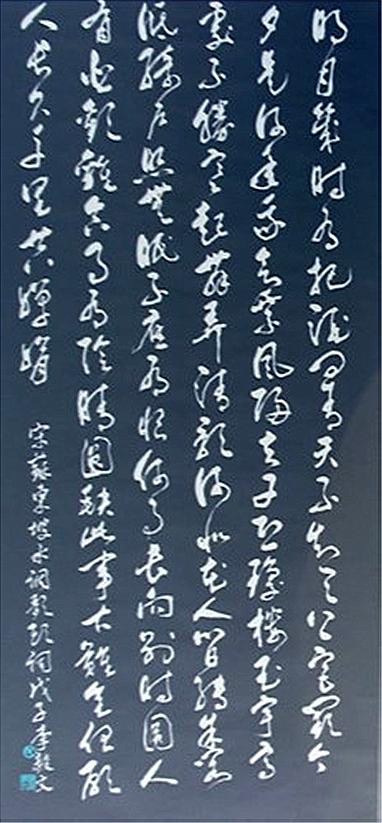 明月幾時有把酒問青天不知天上宮闕今
夕是何年我欲乘風歸去又恐瓊樓玉宇高
處不勝寒起舞弄清影何似在人間轉朱閣
低綺戶照無眠不應有恨何事長向別時圓人
有悲歡離合月有陰晴圓缺此事古難全但願
人長久千里共嬋娟
宋蘇東坡水調歌頭詞戊子李文